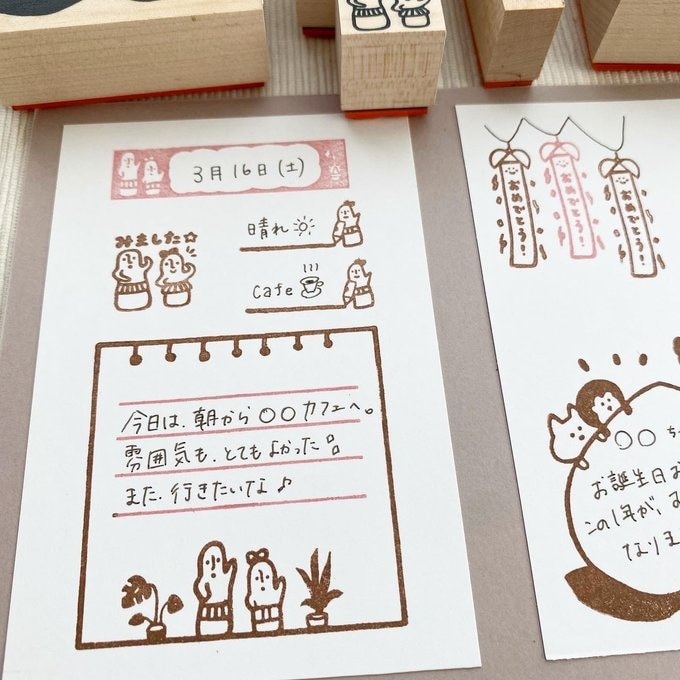 3月16日(土)
みました☆
晴れ
Cafe
今日は、朝から〇〇カフェへ。
雰囲気も、とてもよかった!!
また、行きたいな♪
おめでとう!
おめでとう!
おめでとう!
〇〇 ち
お誕生日お
この1年が、
なりま